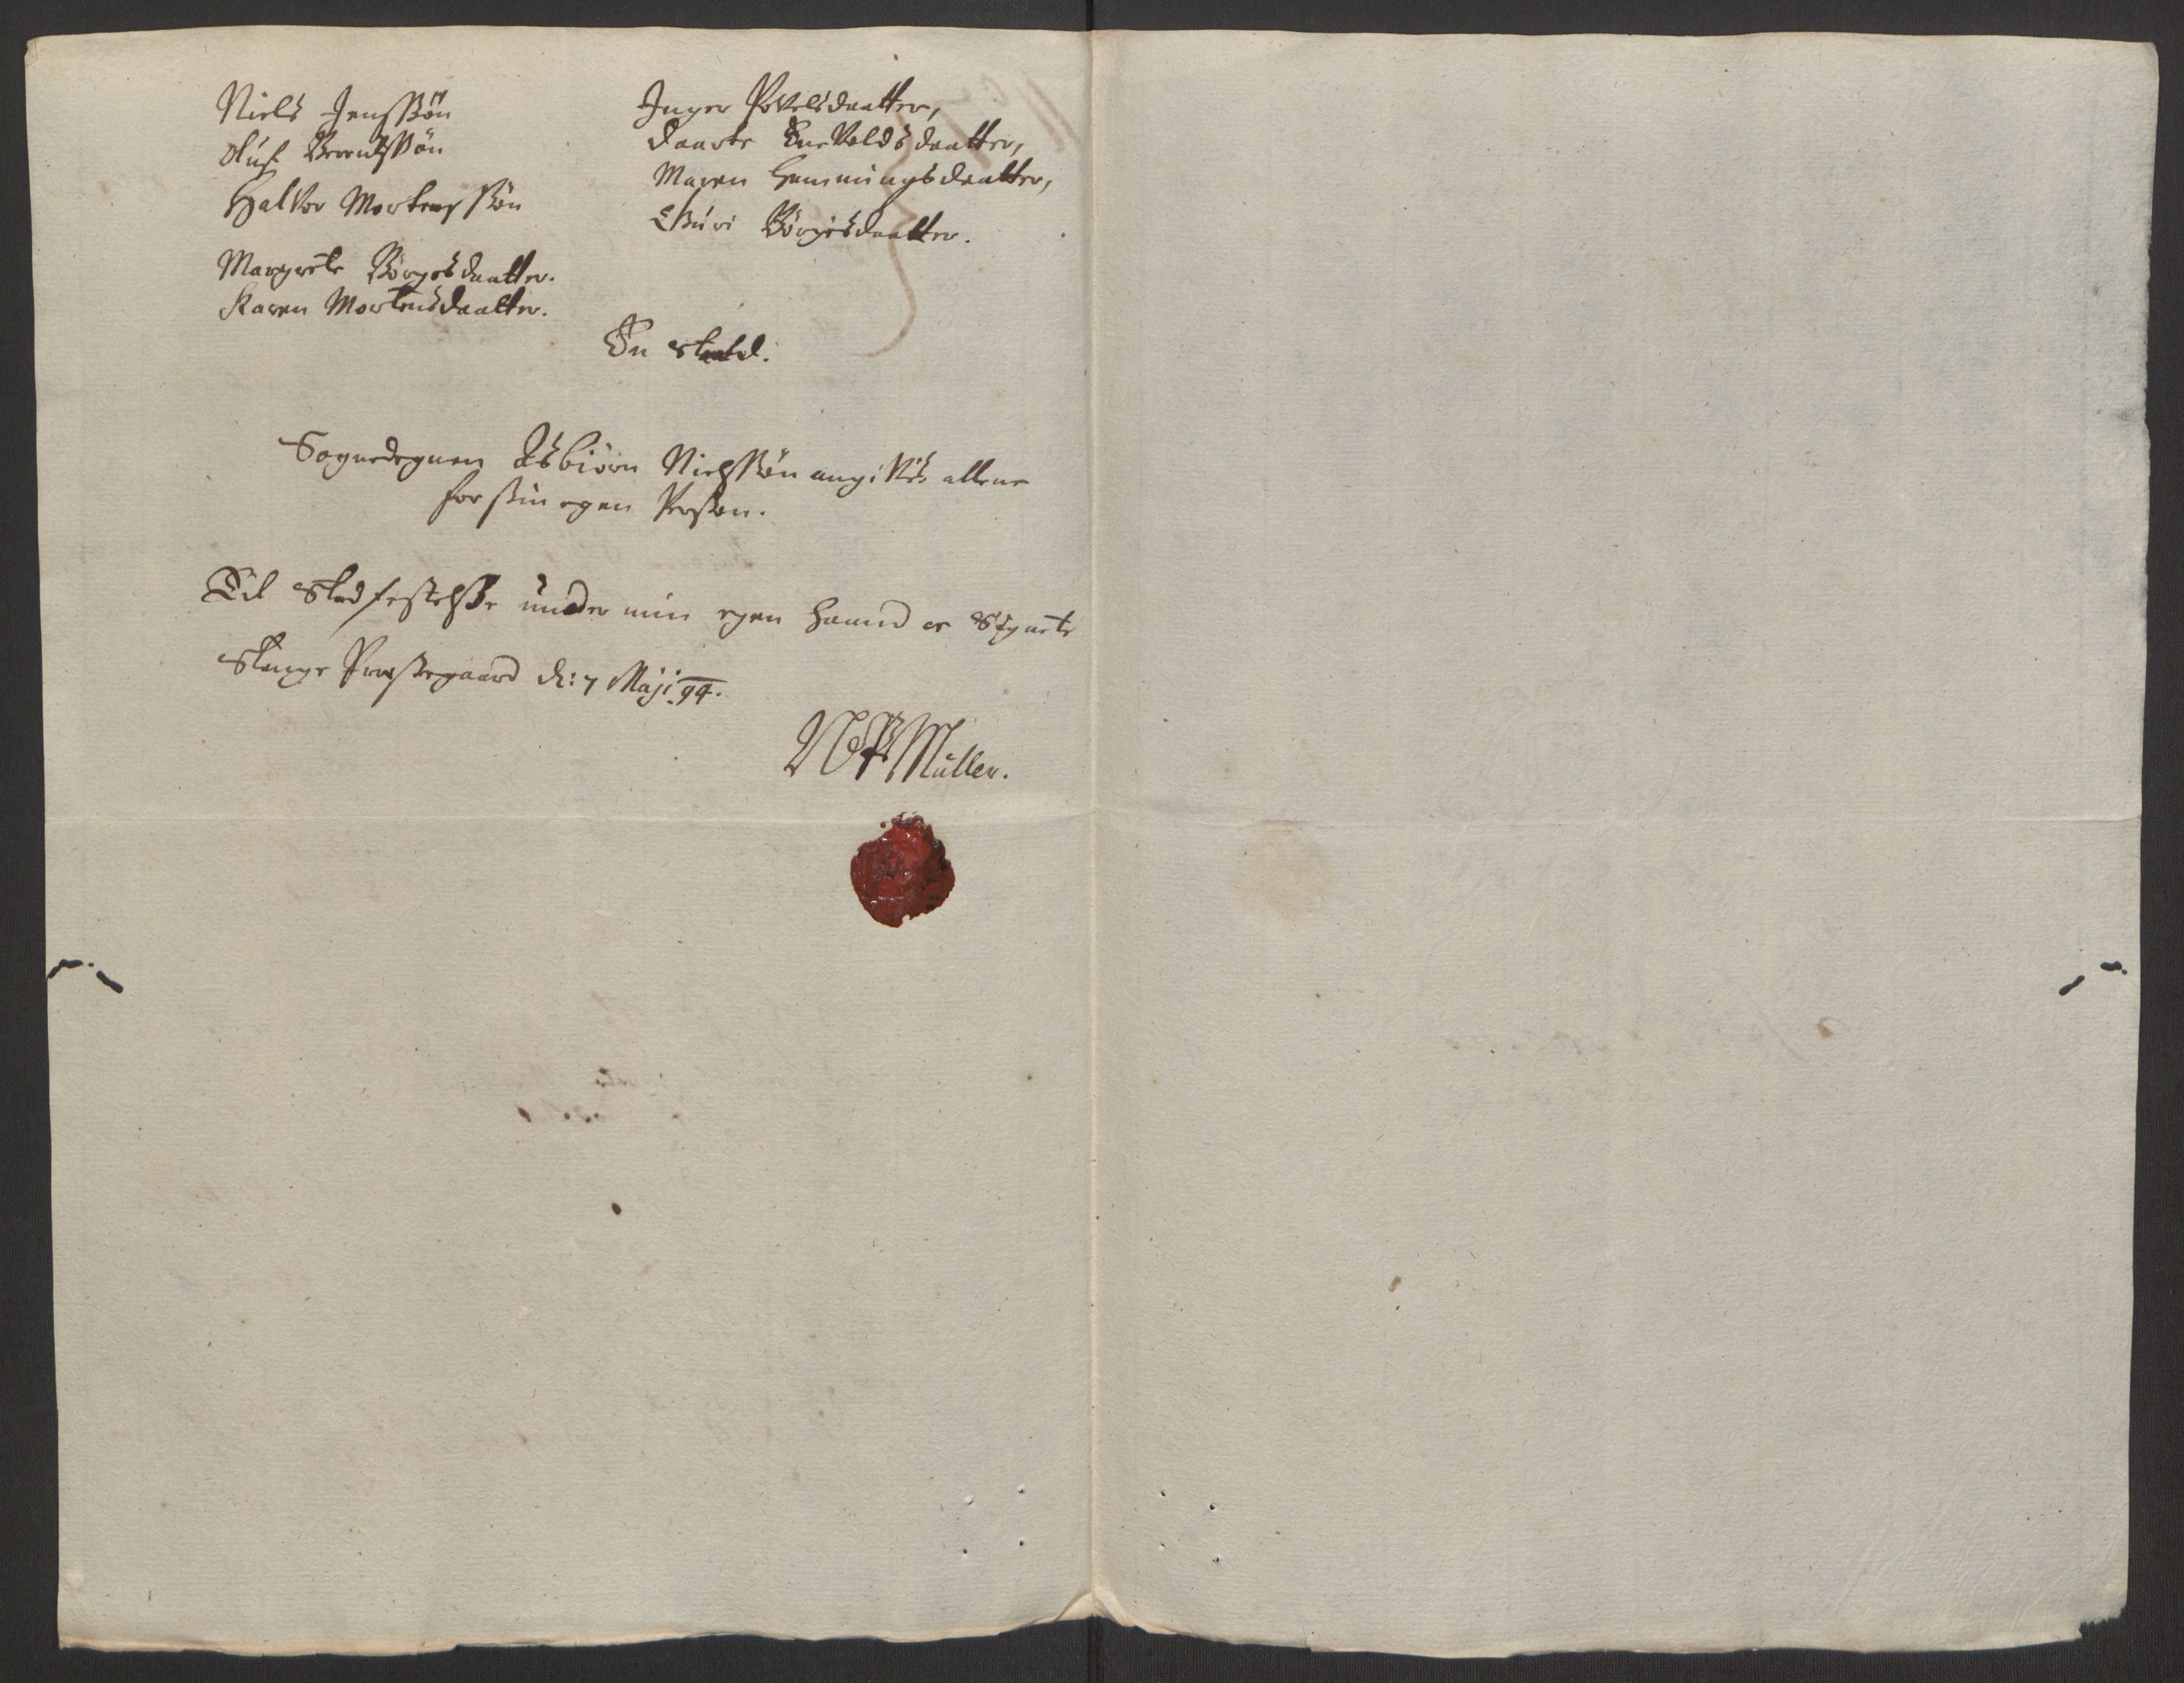 Niels Jenssøn
Oluf Berentssøn
Halvor Mortenssøn
Margrete Børgesdaatter.
Karen Mortensdaatter.
Inger Povelsdaatter,
Daarte Enevoldsdaatter,
Maren Hemmingsdaatter,
Guri Børgesdaatter.
En
Sognedegnen Asbiørn Nielssøn angives allene
for sin egen Person.
Til Stadfestelsse under min egen Haand oc Signete
Stange Præstegaard d: 7 Maji 94.
Müller.